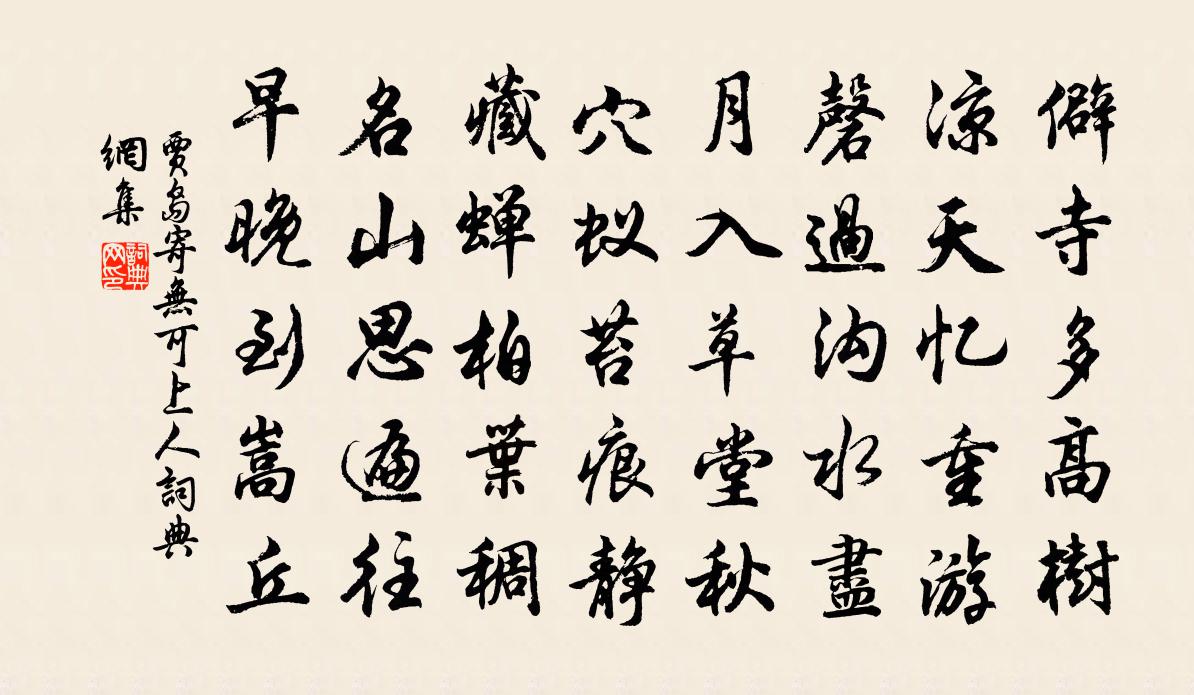 僻寺多高樹
涼天忆重游
磬過沟水盡
月入草堂秋
穴蚁苔痕靜
藏蝉柏葉稠
名山思遍往
早晚到嵩丘
賈島寄無可上人詞典
網集
詞典
网印